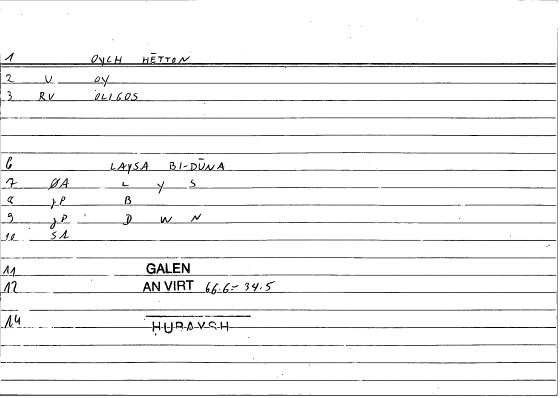 1 OYCH HĒTTON
2 V OY
3 RV OLIGOS
6 LAYSA BI-DŪNA
7 ØA L Y S
8 JP B
9 JP D W N
10 S1
11 GALEN
12 AN VIRT 66.6-34.5
14 HUBAYSH